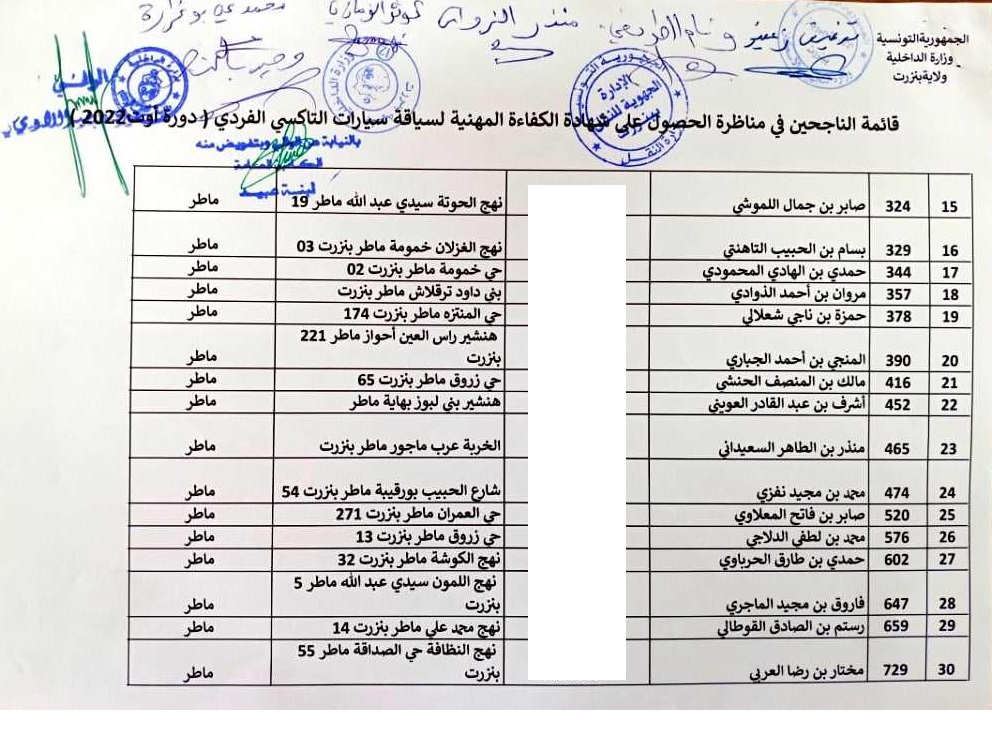 الجمهورية التونسية
وزارة الداخلية
ولاية بنزرت
قائمة الناجحين في مناظرة الحصول على شهادة الكفاءة المهنية لسياقة سيارات التاكسي الفردي ( دورة أوت 2022 )
بالنيابة عن الوالي وبتفويض منه
15 324 صابر بن جمال اللموشي نهج الحوتة سيدي عبد الله ماطر 19 ماطر
16 329 بسام بن الحبيب التاهنتي نهج الغزلان خمومة ماطر بنزرت 03 ماطر
17 344 حمدي بن الهادي المحمودي حي خمومة ماطر بنزرت 02 ماطر
18 357 مروان بن أحمد الذوادي بني داود ترقلاش ماطر بنزرت ماطر
19 378 حمزة بن ناجي شعلالي حي المنتزه ماطر بنزرت 174 ماطر
20 390 المنجي بن أحمد الجباري هنشير راس العين أحواز ماطر 221
بنزرت ماطر
21 416 مالك بن المنصف الحنشي حي زروق ماطر بنزرت 65 ماطر
22 452 أشرف بن عبد القادر العويني هنشير بني لبوز بهاية ماطر ماطر
23 465 منذر بن الطاهر السعيداني الخربة عرب ماجور ماطر بنزرت ماطر
24 474 محمد بن مجيد نفزي شارع الحبيب بورقيبة ماطر بنزرت 54 ماطر
25 520 صابر بن فاتح المعلاوي حي العمران ماطر بنزرت 271 ماطر
26 576 محمد بن لطفي الدلاجي حي زروق ماطر بنزرت 13 ماطر
27 602 حمدي بن طارق الحرباوي نهج الكوشة ماطر بنزرت 32 ماطر
28 647 فاروق بن مجيد الماجري نهج اللمون سيدي عبد الله ماطر 5
بنزرت ماطر
29 659 رستم بن الصادق القوطالي نهج محمد علي ماطر بنزرت 14 ماطر
30 729 مختار بن رضا العربي نهج النظافة حي الصداقة ماطر 55
بنزرت ماطر